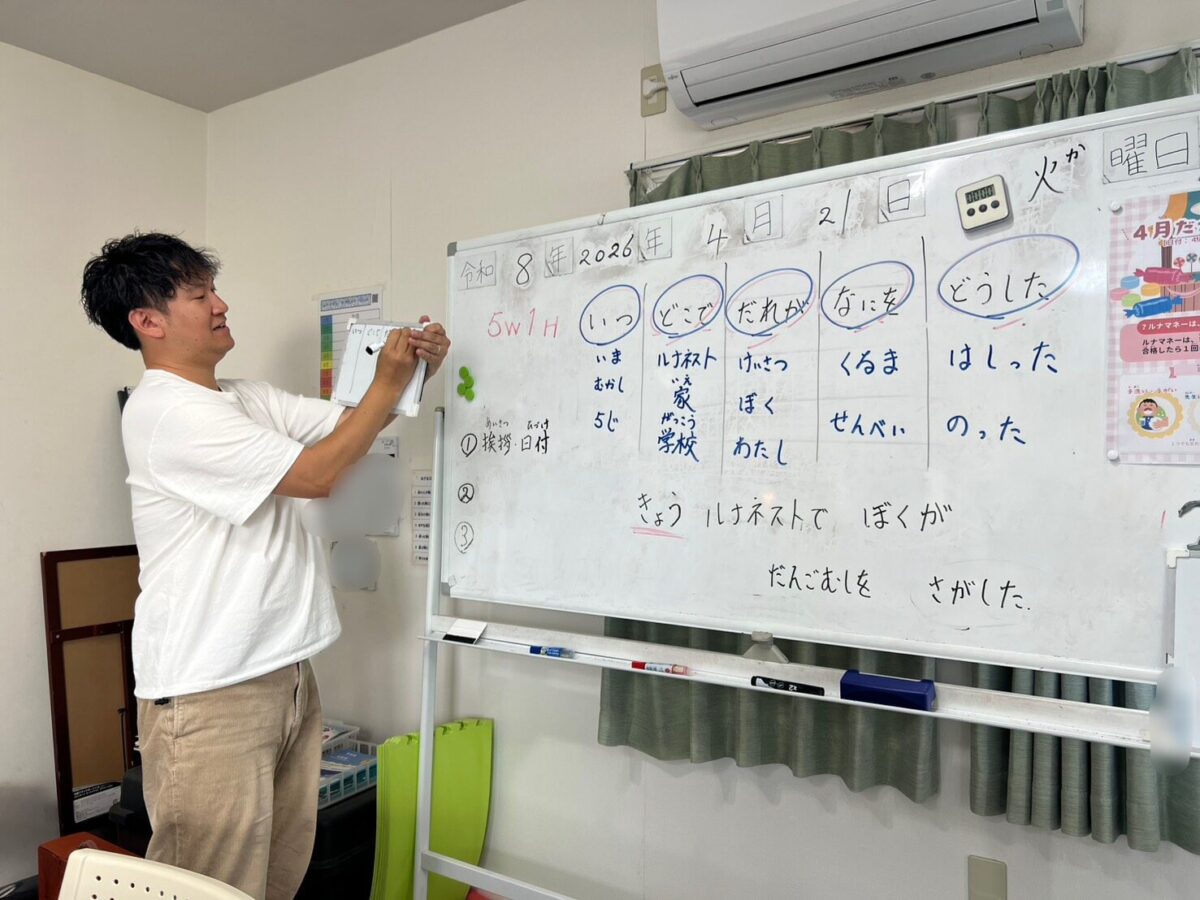 令和 8 年 2026 年 4 月 21 日 火 か 曜日
5W1H
いつ どこで だれが なにを どうした
いま ルナネスト けいさつ くるま はしった
むかし 家 いえ ぼく せんべい のった
5じ 学校 がっこう わたし
① 挨拶・日付 あいさつ ひづけ
②
③
きょう ルナネストで ぼくが
だんごむしを さがした.
4月だ
ルナマネーは、
合格したら1回